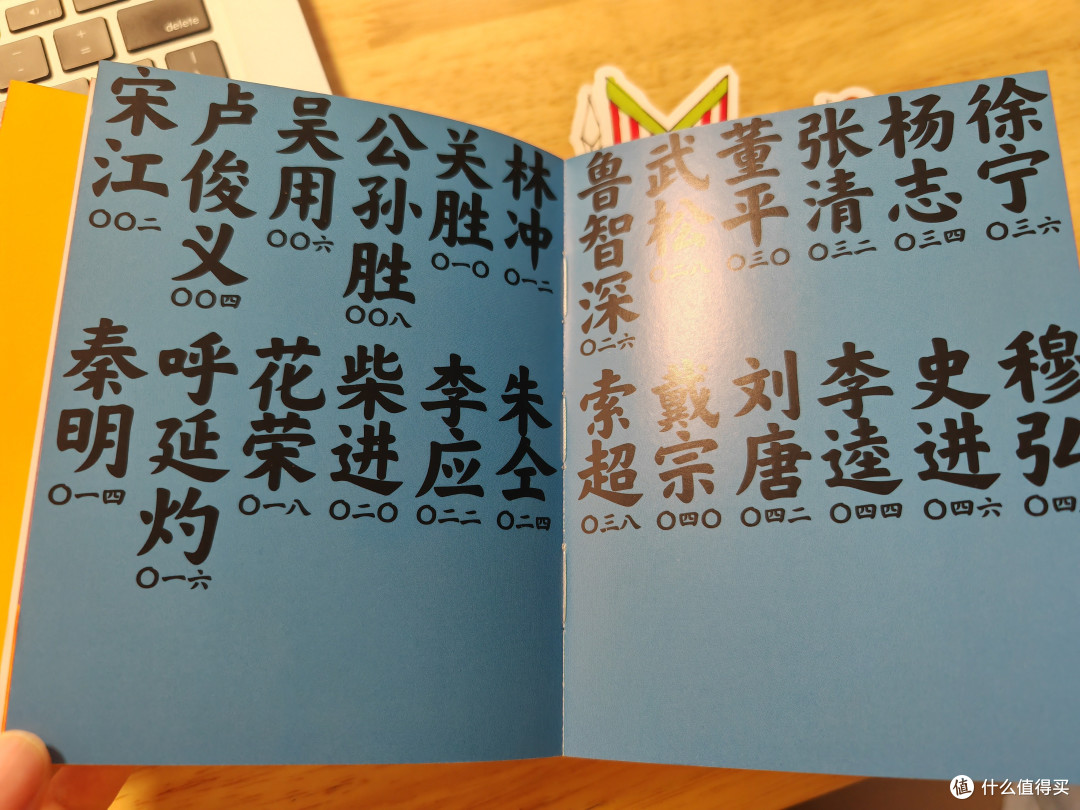 delete
宋江
〇〇二
卢俊义
〇〇四
吴用
〇〇六
公孙胜
〇〇八
关胜
〇一〇
林冲
〇一二
秦明
〇一四
呼延灼
〇一六
花荣
〇一八
柴进
〇二〇
李应
〇二二
朱仝
〇二四
鲁智深
〇二六
武松
董平
〇三〇
张清
〇三二
杨志
〇三四
徐宁
〇三六
索超
〇三八
戴宗
〇四〇
刘唐
〇四二
李逵
〇四四
史进
〇四六
穆弘
〇四
值 什么值得买